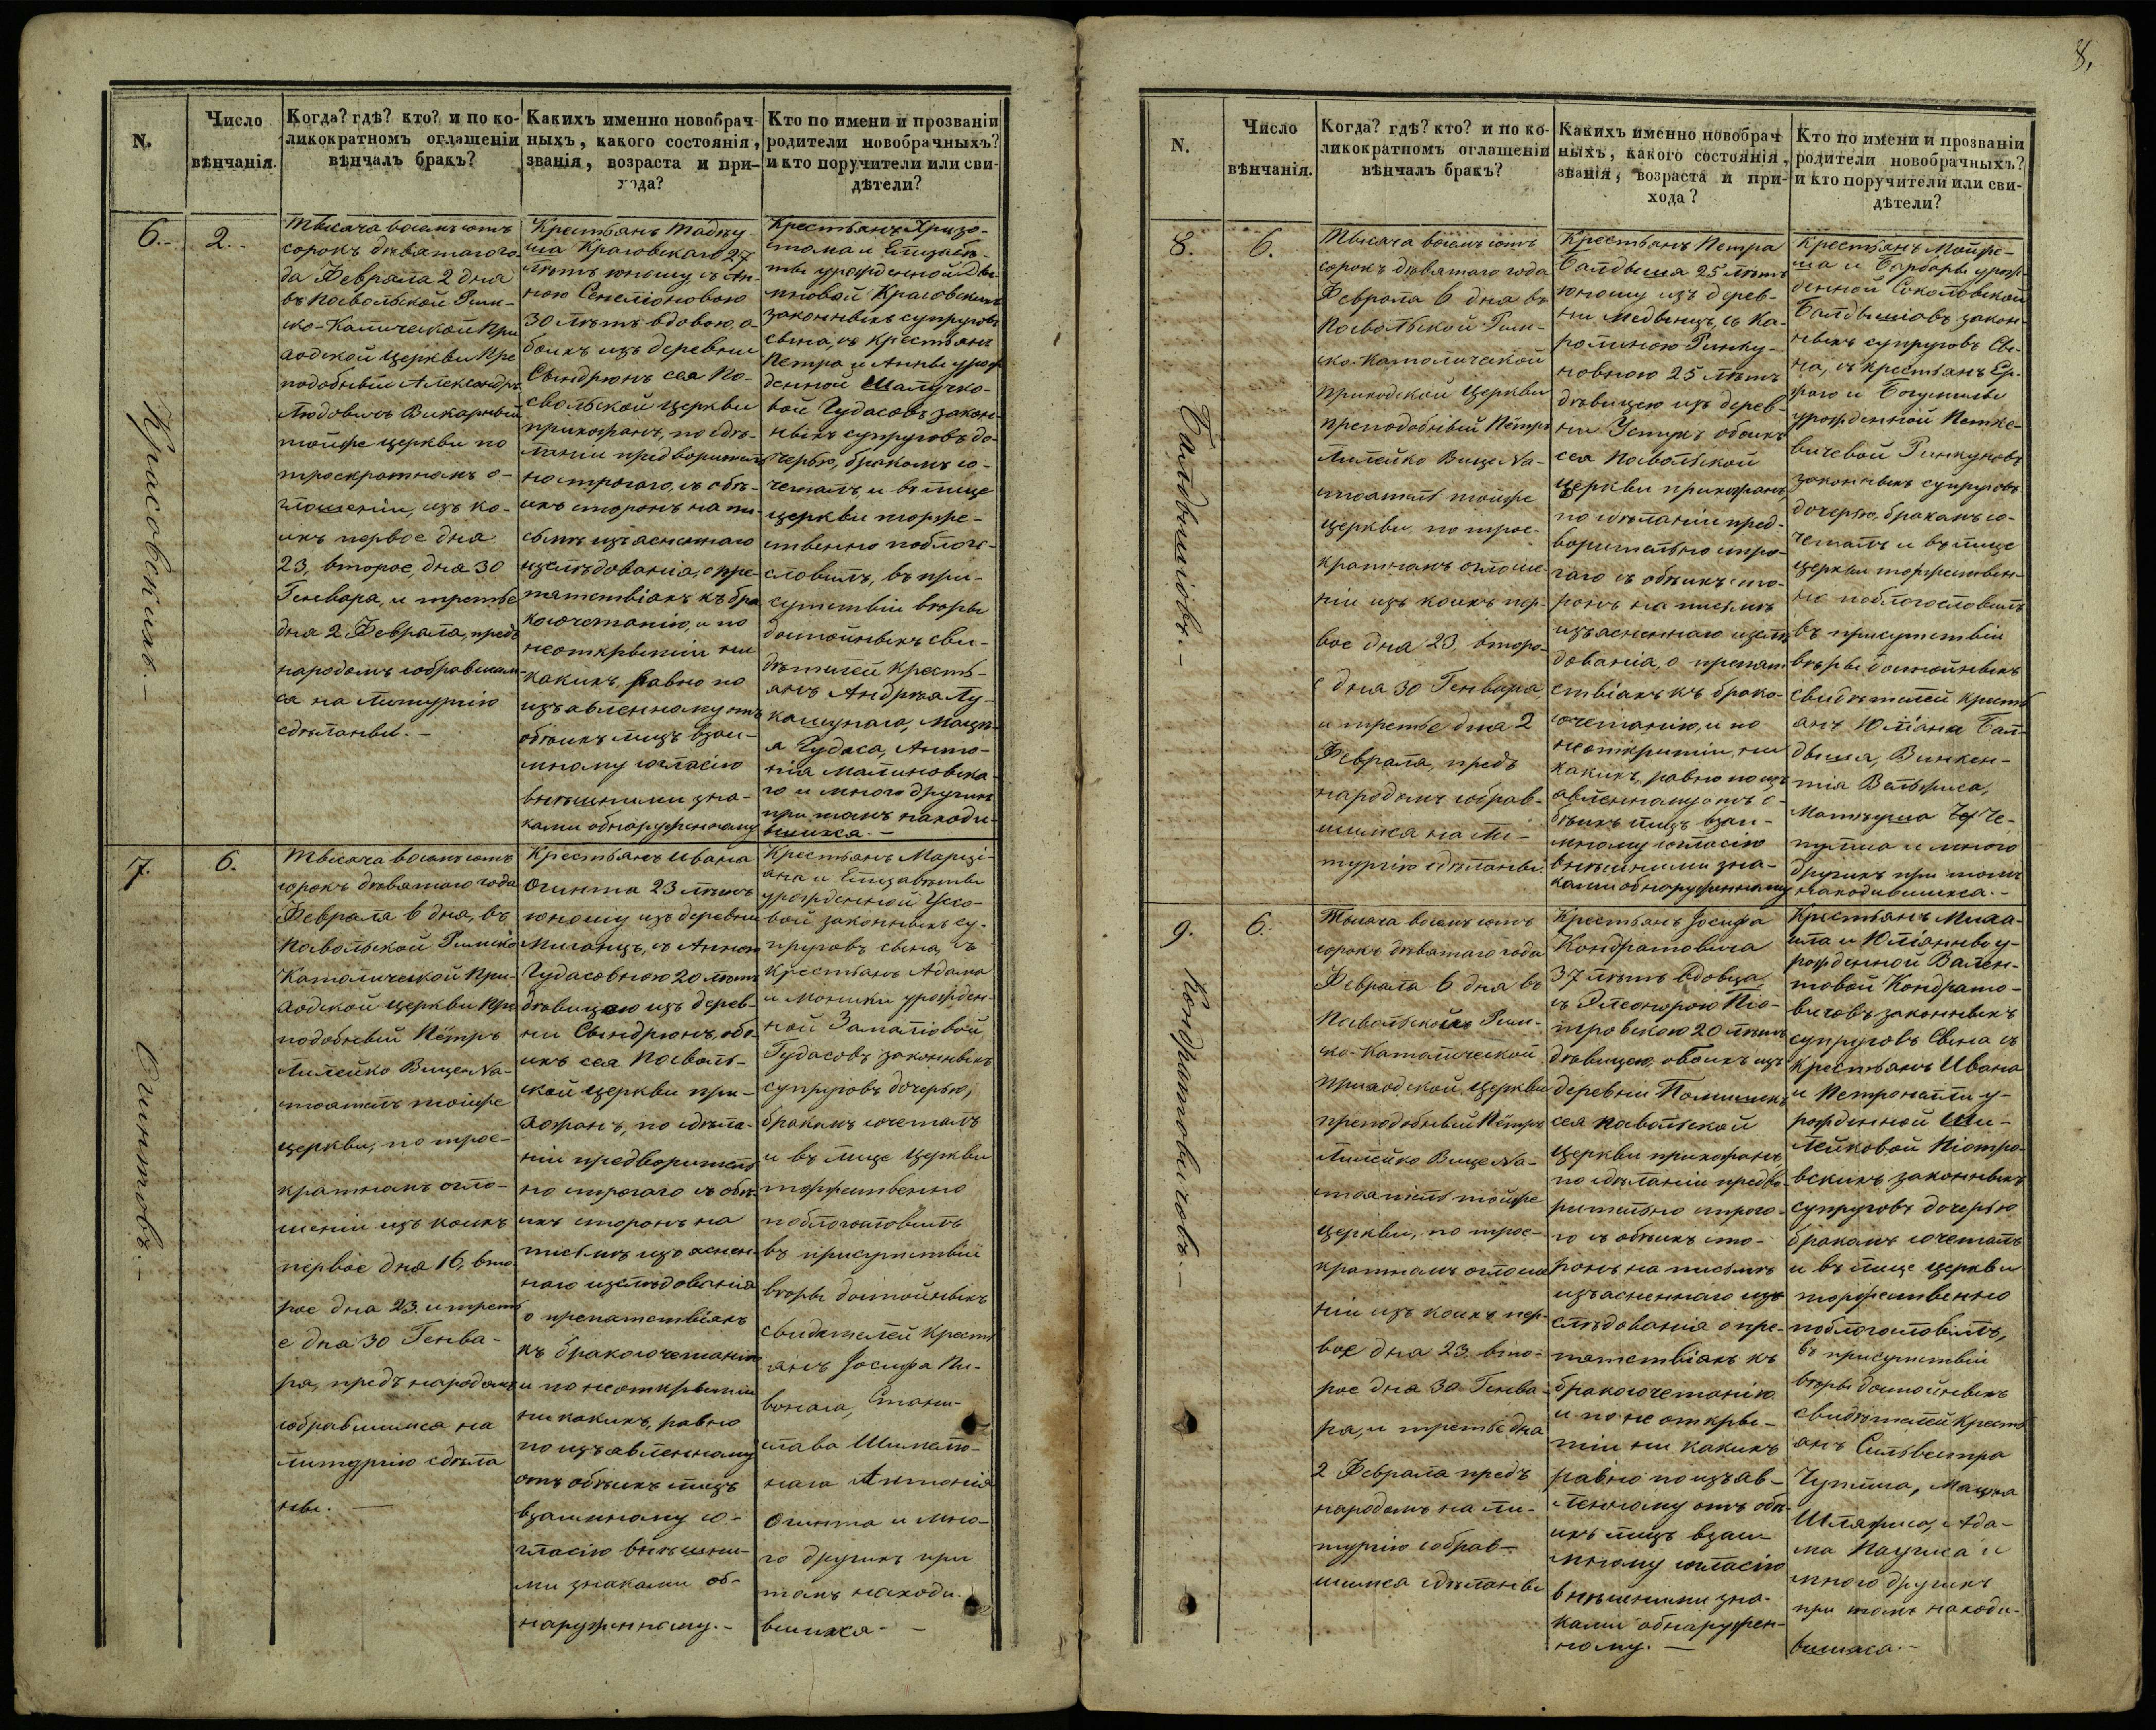 8.
N.
Число
вѣнчанія.
Когда? гдѣ? кто? и по ко-
ликократномъ оглашеніи
вѣнчалъ бракъ?
Какихъ именно новобрач-
ныхъ, какого состоянія,
званія, возраста и при-
хода?
Кто по имени и прозваніи
родители новобрачныхъ?
и кто поручители или сви-
дѣтели?
6.
Красовскихъ.
2.
Тысяча восемь сотъ
сорокъ девятаго го
да Февраля 2 дня
въ Посвольской Рим-
ско-Католической При
ходской церкви Пре
подобный Александръ
Людовичъ Викарный
тойже церкви по
троекратномъ о-
глашеніи, изъ ко-
ихъ первое дня
23, второе, дня 30
Генваря, и третье
дня 2 Февраля, предъ
народомъ собравшим-
ся на Литургію
сдѣланы.
Крестьянъ Тадеу
ша Красовскаго 27
лѣтъ юношу, съ Ан-
ною
30 лѣтъ вдовою, о-
боихъ изъ деревни
Сындрюнъ сея По-
свольской церкви
прихожанъ, по сдѣ-
ланіи предварительъ
но строгаго, съ обѣ-
ихъ сторонъ на пи-
сьмѣ изъясненнаго
изслѣдованія, о пре-
пятствіяхъ къ бра
косочетанію, и по
неоткрытіи ни
какихъ, равно по
изъявленному отъ
обоихъ лицъ взаи-
мному согласію
внѣшними зна-
ками обнаруженному
Крестьянъ Хризо-
стома и Елизаве-
ты урожденной
Красовскихъ
законныхъ супруговъ
сына, съ крестьянъ
Петра и Анны урож
денной
вой Гудасовъ закон-
ныхъ супруговъ до-
черью, бракомъ со-
четалъ, и въ лице
церкви торже-
ственно поблаго-
словилъ, въ при-
сутствіи вѣры
достойныхъ сви-
дѣтелей кресть-
янъ Андрея Лу-
кашунаса, Мацѣ-
я Гудаса, Анто-
нія Малиновска-
го и много другихъ
при томъ находи-
вшихся.
7.
Огинтовъ.
6.
Тысяча восемь сотъ
сорокъ девятаго года
Февраля 6 дня, въ
Посвольской Римско
Католической При-
ходской церкви Пре
подобный Пётръ
Лилейко Вице На-
стоятель тойже
церкви, по трое-
кратномъ огла-
шеніи изъ коихъ
первое дня 16, вто
рое дня 23. и треть
е дня 30 Генва-
ря, предъ народомъ
собравшимся на
литургію сдѣла
ны.
Крестьянъ Ивана
Огинта 23 лѣтъ
юношу изъ деревни
Миганцъ, съ Анною
Гудасовною 20 лѣтъ
дѣвицею изъ дерев-
ни Сындрюнъ, обо-
ихъ сея Посволь-
ской церкви при-
хожанъ, по сдѣла-
ніи предваритель
но строгаго съ обѣ-
ихъ сторонъ на
письмѣ изъяснен-
наго изслѣдованія
о препятствіяхъ
къ бракосочетанію
и по неоткрытіи
ни какихъ, равно
по изъявленному
отъ обоихъ лицъ
взаимному со-
гласію внѣшни-
ми знаками об-
наруженному.
Крестьянъ Марці-
ана и Елизаветы
урожденной Уссо-
вой законныхъ су-
пруговъ сына, съ
крестьянъ Адама
и Моники урожден-
ной
Гудасовъ законныхъ
супруговъ дочерью,
бракомъ сочеталъ
и въ лице церкви
торжественно
поблагословилъ
въ присутствіи
вѣры достойныхъ
свидѣтелей кресть
янъ Іосифа Пи-
вонаса, Стани-
слава
наса Антонія
Огинта и мно-
го другихъ при
томъ находи-
вшихся
N.
Число
вѣнчанія.
Когда? гдѣ? кто? и по ко-
ликократномъ оглашеніи
вѣнчалъ бракъ?
Какихъ именно новобрач
ныхъ, какого состоянія,
званія, возраста и при-
хода?
Кто по имени и прозваніи
родители новобрачныхъ?
и кто поручители или сви-
дѣтели?
8.
Балдышовъ.
6.
Тысяча восемь сотъ
сорокъ девятаго года
Февраля 6 дня въ
Посвольской Рим-
ско-католической
приходской церкви
преподобный Пётръ
Лилейко Вице На-
стоятель тойже
церкви по трое-
кратномъ оглаше-
ніи изъ коихъ пер-
вое дня 23. второ-
е дня 30 Генваря,
и третье дня 2
Февраля, предъ
народомъ собрав-
шимся на Ли-
тургію сдѣланы.
Крестьянъ Петра
Балдыша 25 лѣтъ
юношу изъ дерев-
ни Медынцъ, съ Ка-
ролиною Ринку-
новною 25 лѣтъ
дѣвицею изъ дерев-
ни Устукъ обоихъ
сея Посвольской
церкви прихожанъ
по сдѣланіи пред-
варительно стро-
гаго съ обѣихъ сто-
ронъ на письмѣ
изъясненнаго изслѣ
дованія, о препят
ствіяхъ къ брако-
сочетанію, и по
неоткрытіи, ни
какихъ, равно по изъ
явленному отъ о-
бѣихъ лицъ взаи-
мному согласію
внѣшними зна-
ками обнаруженному
Крестьянъ Мойже-
ша и Барбары урож-
денной Соколовской
Балдышовъ закон-
ныхъ супруговъ сы-
на, съ крестьянъ Ер-
жаго и Богумилы
урожденной Петке-
вичевой Ринкуновъ
законныхъ супруговъ
дочерью, бракомъ со-
четалъ и въ лице
церкви торжествен-
но поблагословилъ
въ присутствіи
вѣры достойныхъ
свидѣтелей кресть
янъ Юліана Бал-
дыша, Винкен-
тія
Матеуша Че-
и много
другихъ при томъ
находившихся.
9.
Кондратовичовъ.
6.
Тысяча восемь сотъ
сорокъ девятаго года
Февраля 6 дня въ
Посвольской Рим-
ско-Католической
приходской церкви
преподобный Пётръ
Лилейко Вице На-
стоятель тойже
церкви, по трое-
кратномъ оглаше
ніи изъ коихъ пер-
вое дня 23. вто-
рое дня 30 Генва-
ря, и третье дня
2 Февраля предъ
народомъ на ли-
тургію собрав-
шимся сдѣланы
Крестьянъ Іосифа
Кондратовича
37 лѣтъ вдовца
съ Элеонорою Піо-
тровскою 20 лѣтъ
дѣвицею, обоихъ изъ
деревни
сея Посвольской
церкви прихожанъ
по сдѣланіи предва-
рительно строга-
го съ обѣихъ сто-
ронъ на письмѣ
изъясненнаго из-
слѣдованія о пре-
пятствіяхъ къ
бракосочетанію
и по не откры-
тіи ни какихъ
равно по изъяв-
ленному отъ обѣ-
ихъ лицъ взаи-
мному согласію
внѣшними зна-
ками обнаружен-
ному.
Крестьянъ Миха-
ила и Юліанны у-
рожденной Вален-
товой Кондрато-
вичовъ законныхъ
супруговъ Сына съ
крестьянъ Ивана
и Петронелли у-
рожденной Ши-
лейковой Піотро-
вскихъ законныхъ
супруговъ дочерью
бракомъ сочеталъ
и въ лице церкви
торжественно
поблагословилъ,
въ присутствіи
вѣры достойныхъ
свидѣтелей кресть
янъ Сильвестра
Мацѣя
Ада-
ма и
много другихъ
при томъ находи-
вшихся.